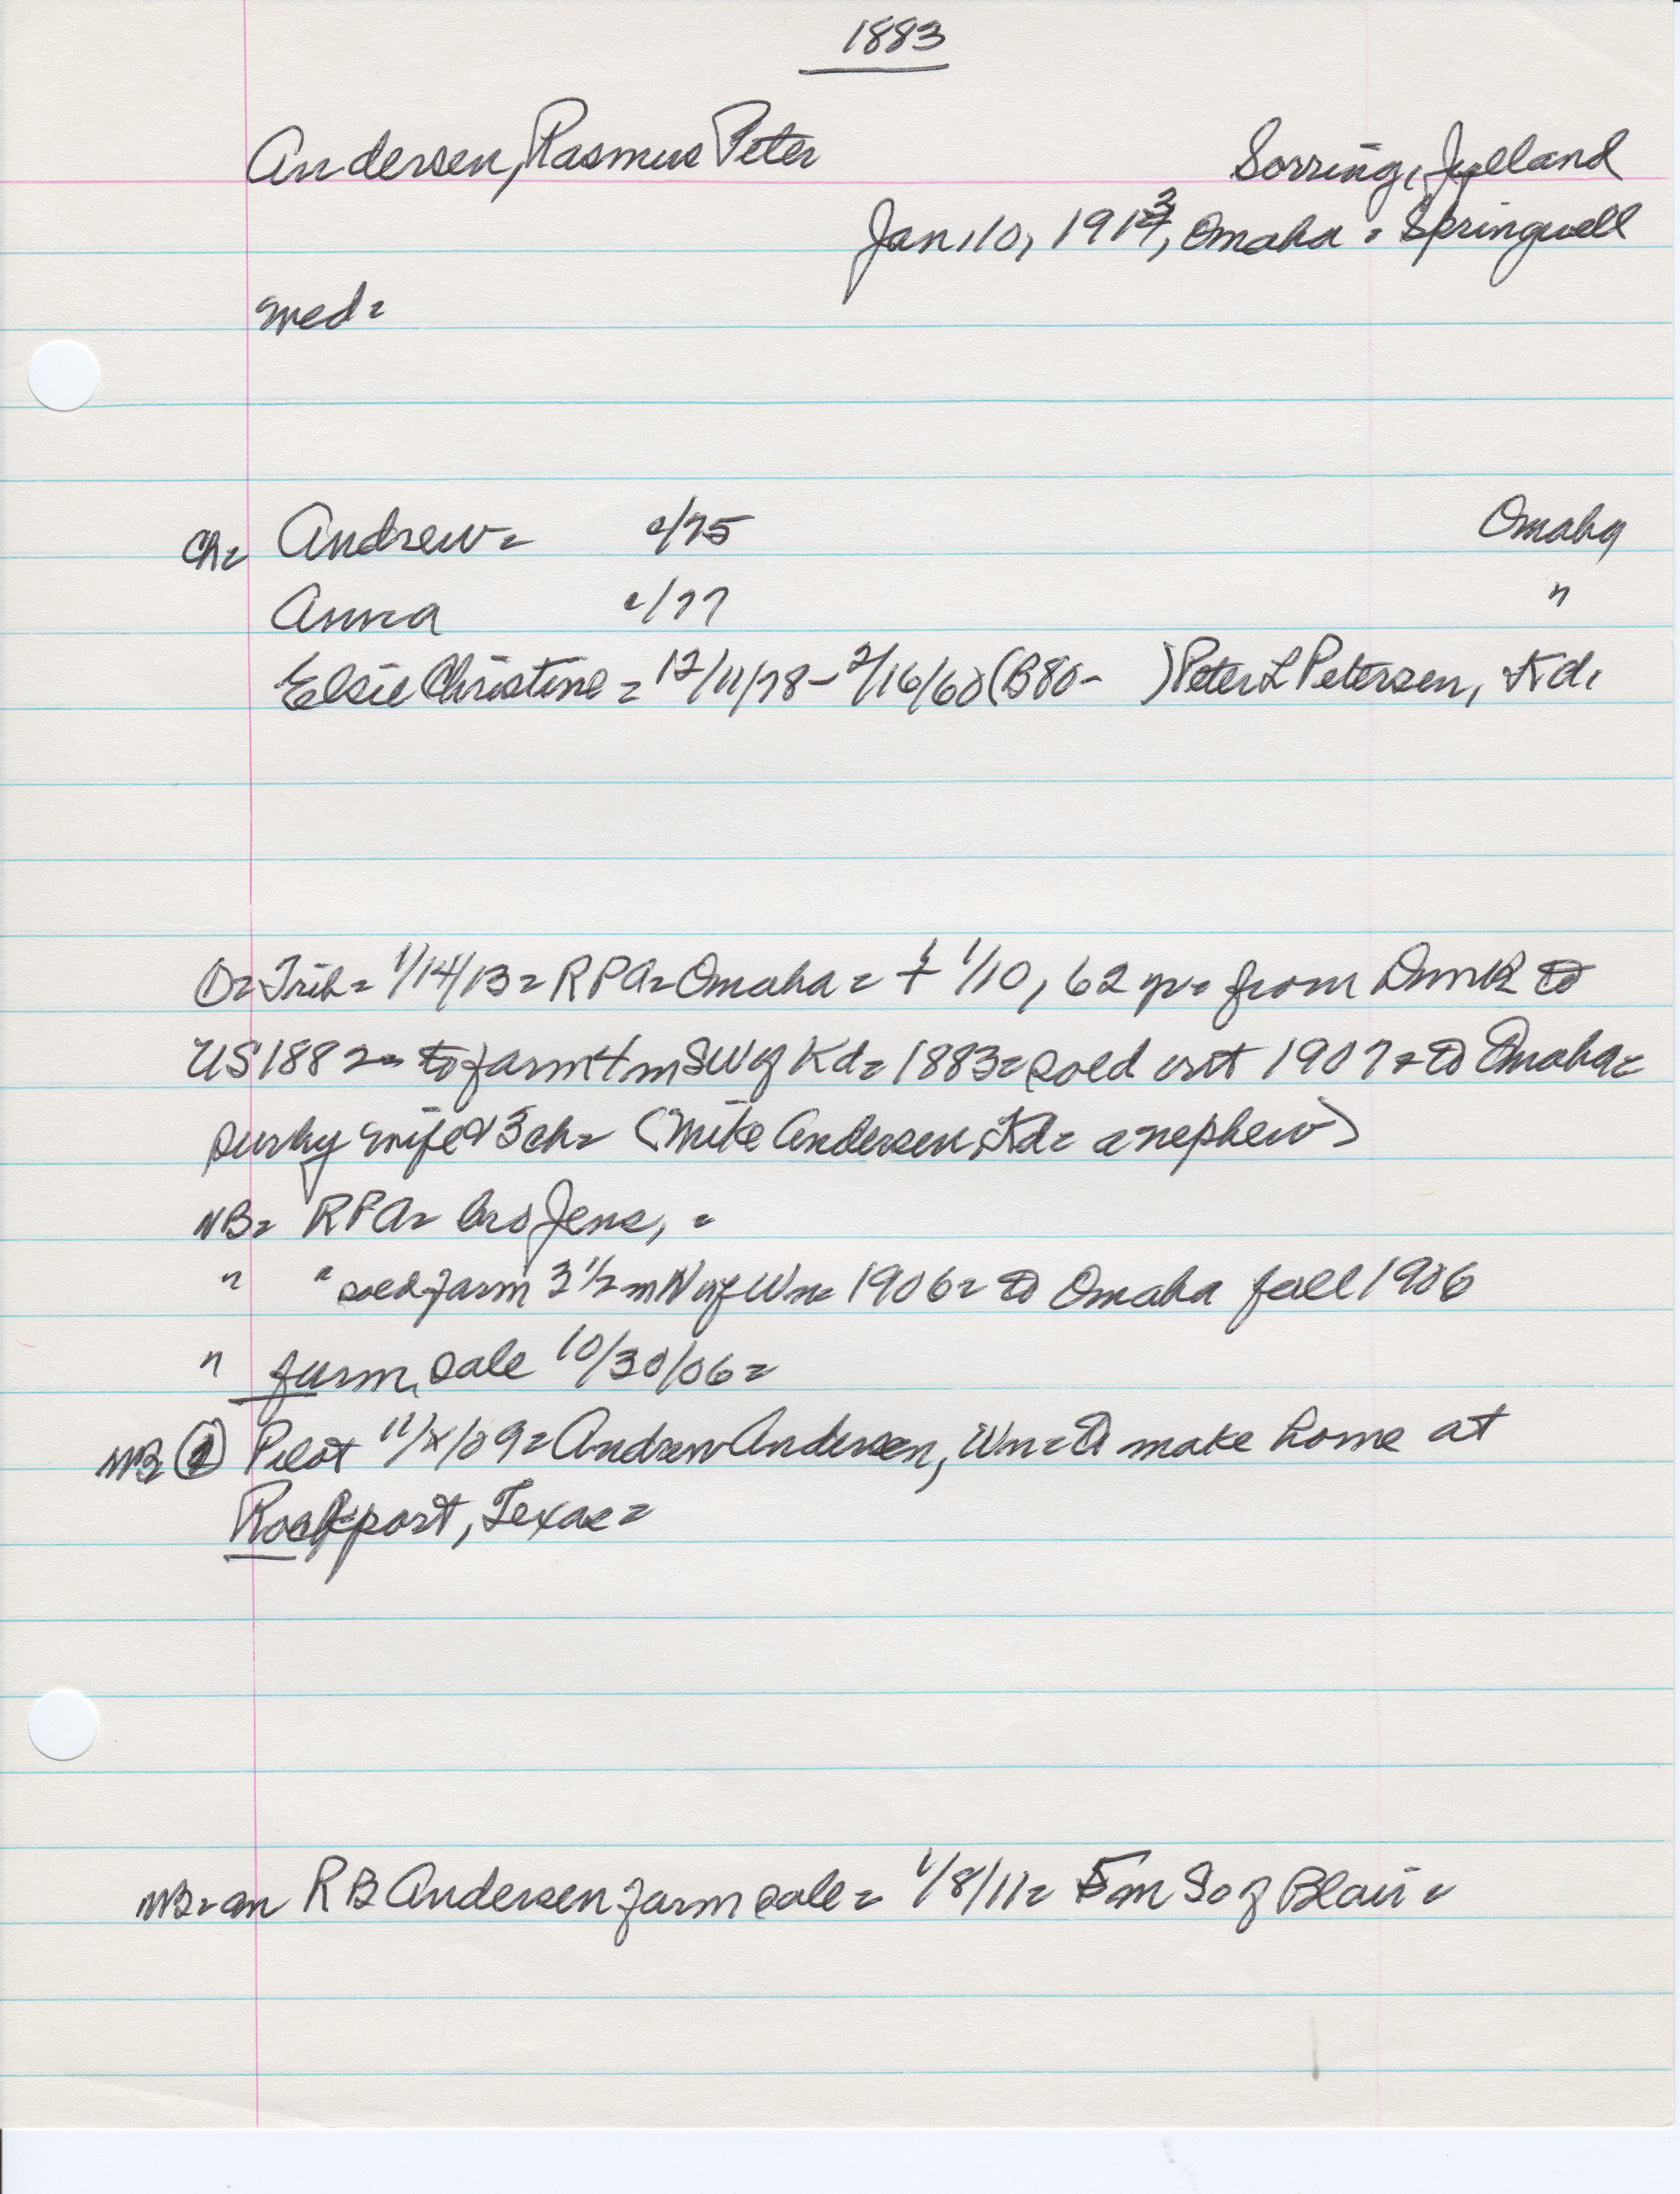 1883
Andersen, Rasmus Peter Sorring, Jylland
Jan. 10, 1913, Omaha = Springwell
Wed=
Ch= Andrew= c/75 Omaha
Anna c/77 "
Elsie Christine = 12/11/78 - 2/16/60 (B80- ) Peter L Petersen, Kd.
O= Trib= 1/14/13 = RPA= Omaha = † 1/10, 62 yr= from Dmk to
US 1882= to farm 4 m SW of Kd= 1883= sold out 1907= to Omaha=
surby wife & 3 ch= (Mike Andersen, Kd= a nephew)
NB= RPA= bro Jens, =
" " sold farm 3 1/2 m N of Wn= 1906= to Omaha fall 1906
" farm sale 10/30/06=
NB (1) Pilot 11/x/09= Andrew Andersen, Wn= to make home at
Rockport, Texas=
NB= an RB Andersen farm sale = 1/8/11= 5 m So of Blair =